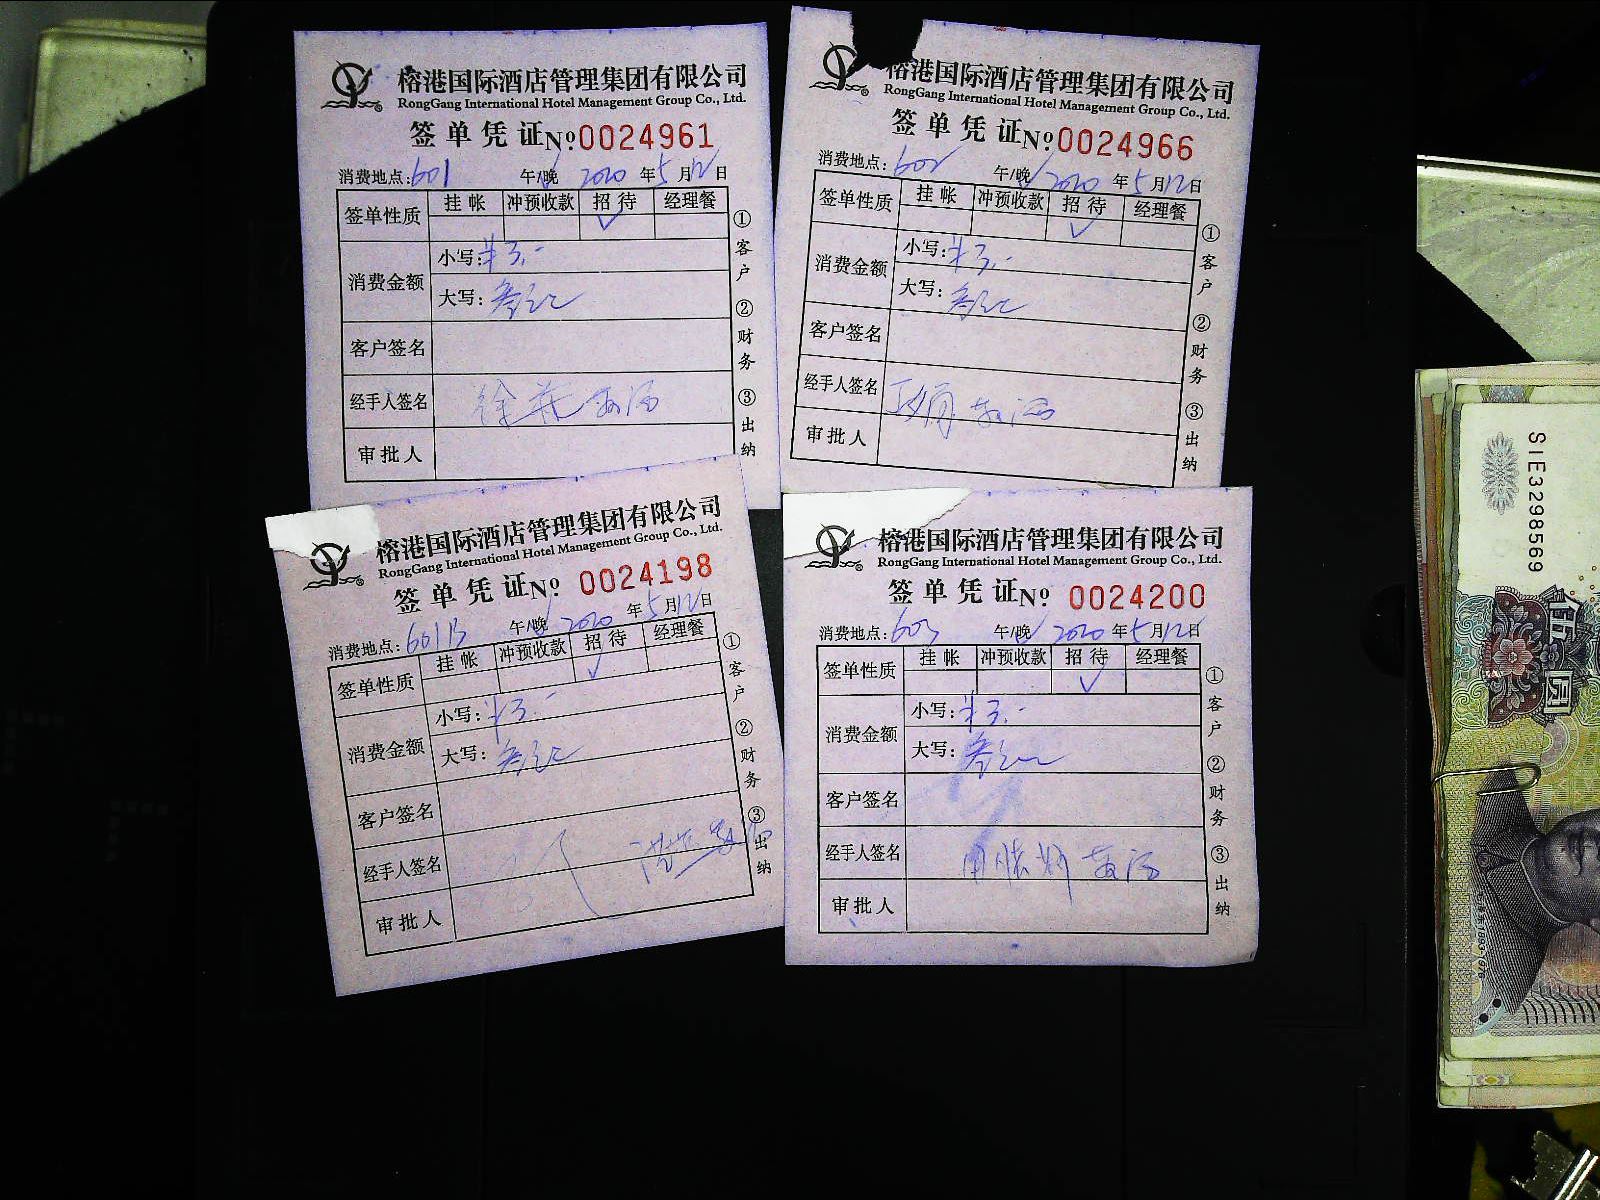 榕港国际酒店管理集团有限公司
RongGang International Hotel Management Group Co., Ltd.
签单凭证№0024961
消费地点:601 午/晚 2020年5月12日
签单性质 挂帐 冲预收款 招待 经理餐
✓
消费金额
小写:
大写:
客户签名
经手人签名
审批人
①客户 ②财务 ③出纳
榕港国际酒店管理集团有限公司
RongGang International Hotel Management Group Co., Ltd.
签单凭证№0024966
消费地点:602 午/晚 2020年5月12日
签单性质 挂帐 冲预收款 招待 经理餐
✓
消费金额
小写:
大写:
客户签名
经手人签名
审批人
①客户 ②财务 ③出纳
榕港国际酒店管理集团有限公司
RongGang International Hotel Management Group Co., Ltd.
签单凭证№ 0024198
消费地点:601B 午/晚 2020年5月12日
签单性质 挂帐 冲预收款 招待 经理餐
✓
消费金额
小写:
大写:
客户签名
经手人签名
审批人
①客户 ②财务 ③出纳
榕港国际酒店管理集团有限公司
RongGang International Hotel Management Group Co., Ltd.
签单凭证№ 0024200
消费地点:603 午/晚 2020年5月12日
签单性质 挂帐 冲预收款 招待 经理餐
✓
消费金额
小写:
大写:
客户签名
经手人签名
审批人
①客户 ②财务 ③出纳
SIE3298569
伍圆
1893-1976